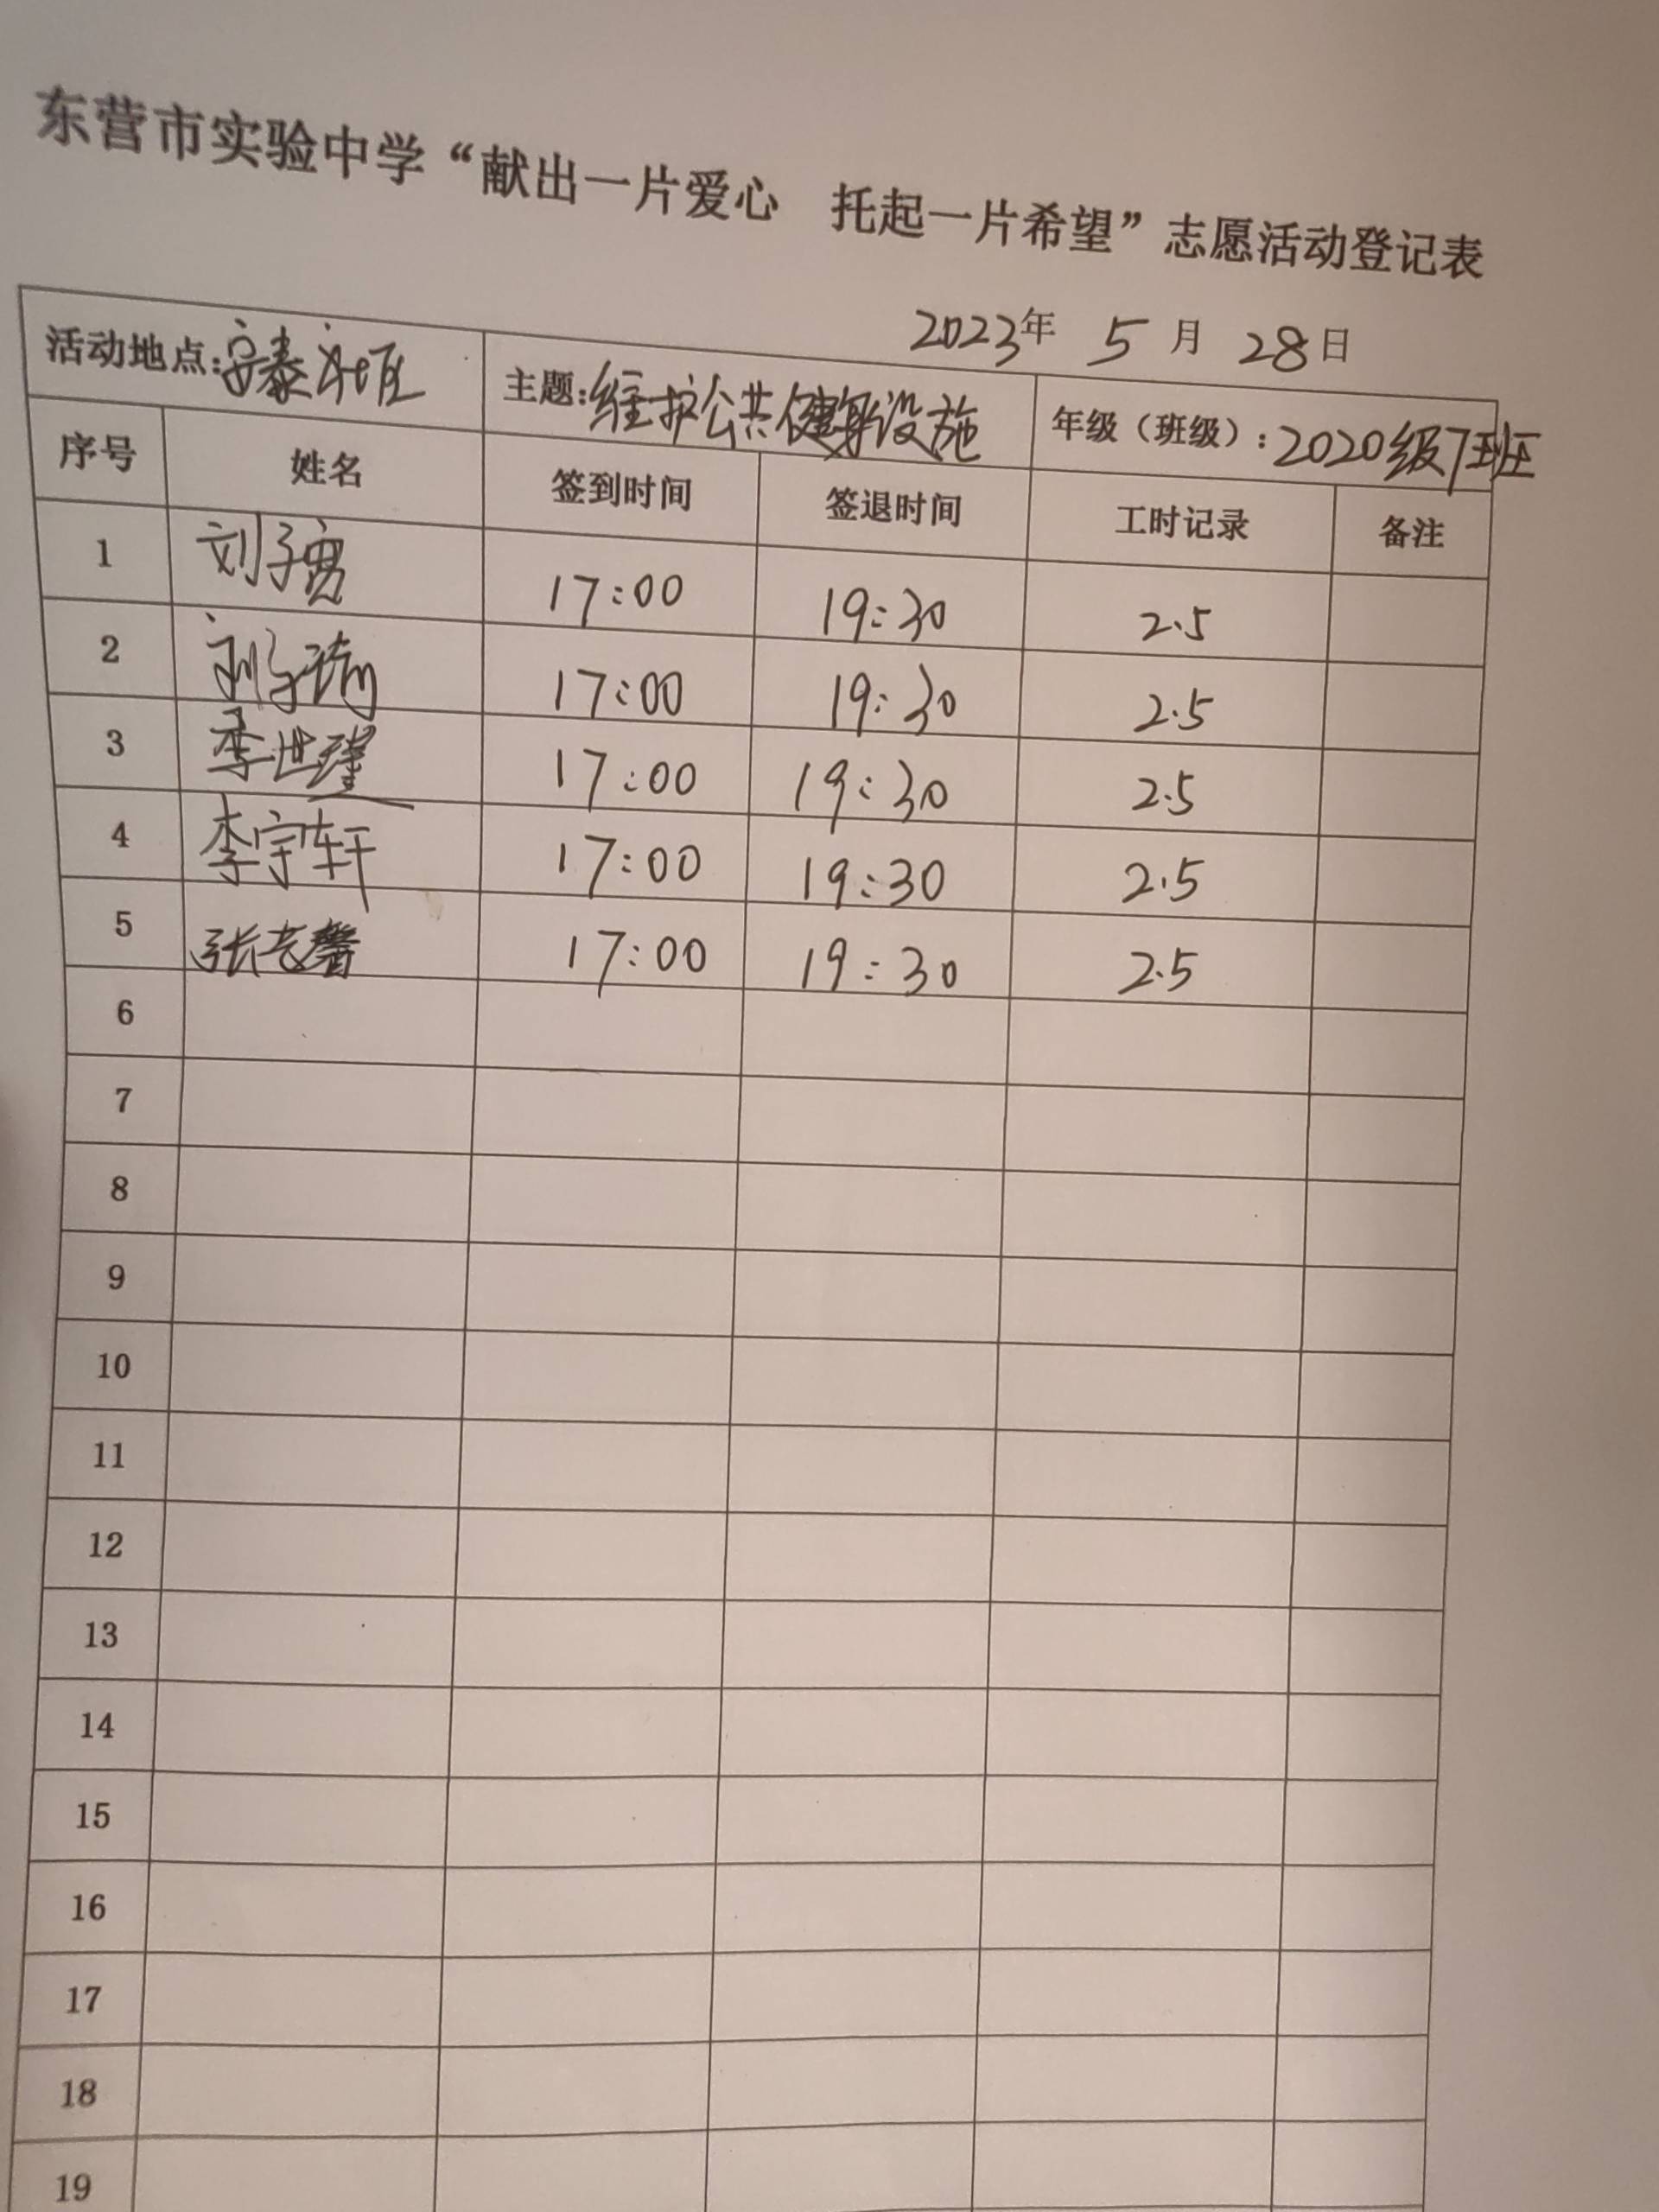 东营市实验中学“献出一片爱心 托起一片希望”志愿活动登记表
2023年 5月 28日
活动地点:安泰北区 主题:维护公共健身设施 年级（班级）:2020级7班
序号 姓名 签到时间 签退时间 工时记录 备注
1 刘子 17:00 19:30 2.5
2 刘子琦 17:00 19:30 2.5
3 季世瑾 17:00 19:30 2.5
4 李宇轩 17:00 19:30 2.5
5 张艺馨 17:00 19:30 2.5
6
7
8
9
10
11
12
13
14
15
16
17
18
19